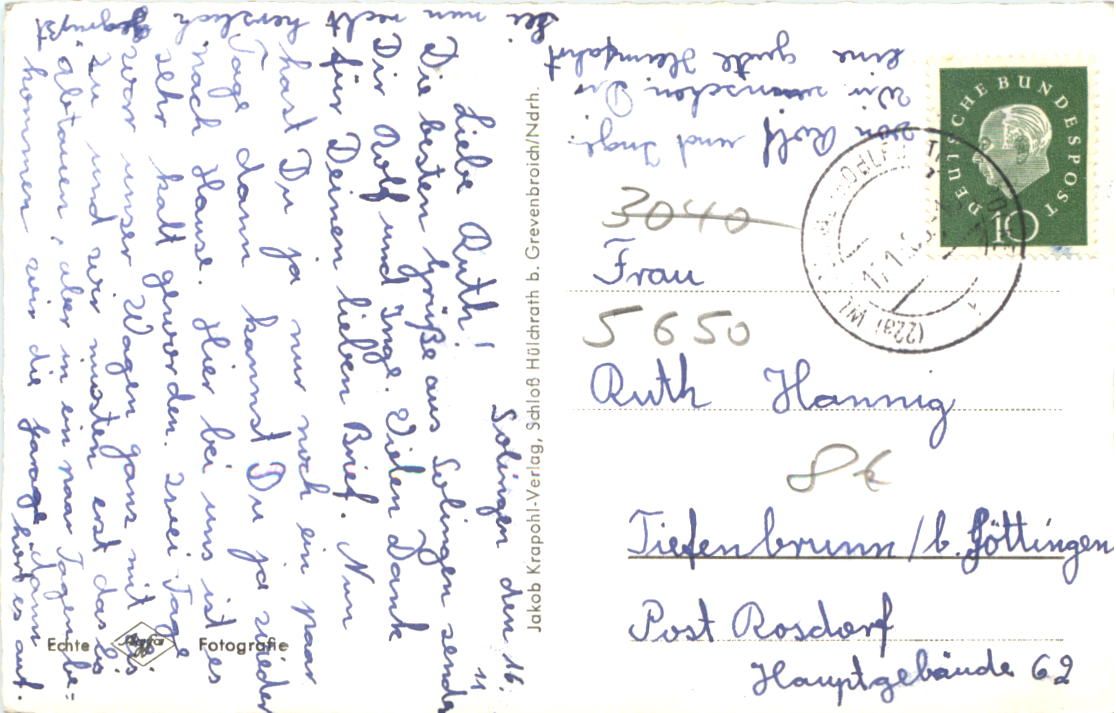 Solingen den 16. 11
Liebe Ruth!
Die besten Grüße aus Solingen senden
Dir Rolf und Inge. Vielen Dank
für Deinen lieben Brief. Nun
hast Du ja nur noch ein paar
Tage dann kannst Du ja wieder
nach Hause. Hier bei uns ist es
sehr kalt geworden. Zwei Tage
war unser Wagen ganz mit Eis
zu und wir mußten erst das Eis
abtauen, aber in ein paar Tagen be=
kommen wir die Garage dann hört es auf.
Sei nun recht herzlich gegrüßt
von Rolf und Inge.
Wir wünschen Dir
eine gute Heimfahrt
Jakob Krapohl-Verlag, Schloß Hülchrath b. Grevenbroich/Ndrh.
Echte Agfa Fotografie
DEUTSCHE BUNDESPOST
10
(22a)
3040
Frau
5650
Ruth Hannig
8€
Tiefenbrunn / b. Göttingen
Post Rosdorf
Hauptgebäude 62